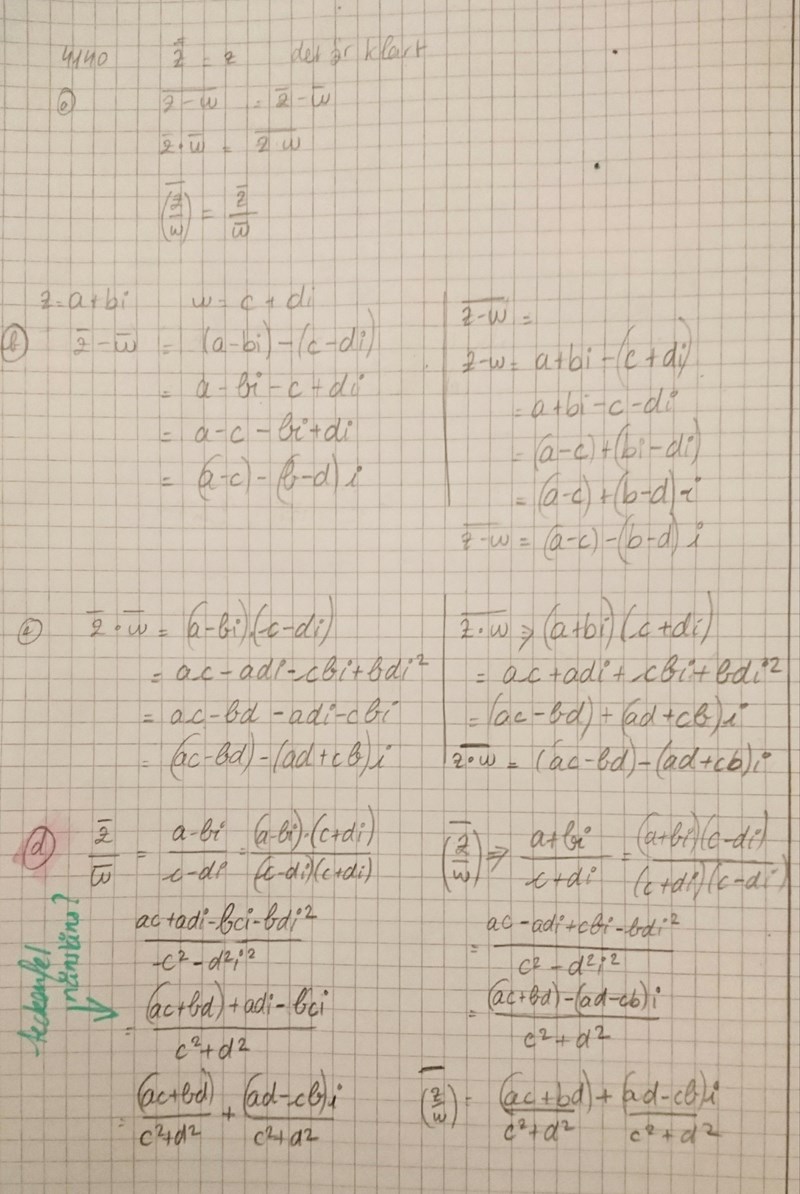 4140 z̿ = z det är klart
a) \overline{z-w} = z̄ - w̄
z̄ · w̄ = \overline{z w}
\overline{(z/w)} = z̄/w̄
z = a+bi w = c + di
b) z̄ - w̄ = (a-bi)-(c-di)
= a-bi-c+di
= a-c-bi+di
= (a-c)-(b-d)i
\overline{z-w} =
z-w = a+bi-(c+di)
= a+bi-c-di
= (a-c)+(bi-di)
= (a-c)+(b-d)i
\overline{z-w} = (a-c)-(b-d)i
c) z̄ · w̄ = (a-bi)·(c-di)
= ac-adi-cbi+bdi²
= ac-bd-adi-cbi
= (ac-bd)-(ad+cb)i
\overline{z·w} ⇒ (a+bi)(c+di)
= ac+adi+cbi+bdi²
= (ac-bd)+(ad+cb)i
\overline{z·w} = (ac-bd)-(ad+cb)i
d) z̄/w̄ = (a-bi)/(c-di) = (a-bi)·(c+di)/(c-di)(c+di)
(ac+adi-bci-bdi²)/(c²-d²i²)
= ((ac+bd)+adi-bci)/(c²+d²)
= (ac+bd)/(c²+d²) + (ad-cb)i/(c²+d²)
teckenfel
nånstans?
\overline{(z/w)} ⇒ (a+bi)/(c+di) = (a+bi)(c-di)/(c+di)(c-di)
= (ac-adi+cbi-bdi²)/(c²-d²i²)
= ((ac+bd)-(ad-cb)i)/(c²+d²)
\overline{(z/w)} = (ac+bd)/(c²+d²) + (ad-cb)i/(c²+d²)